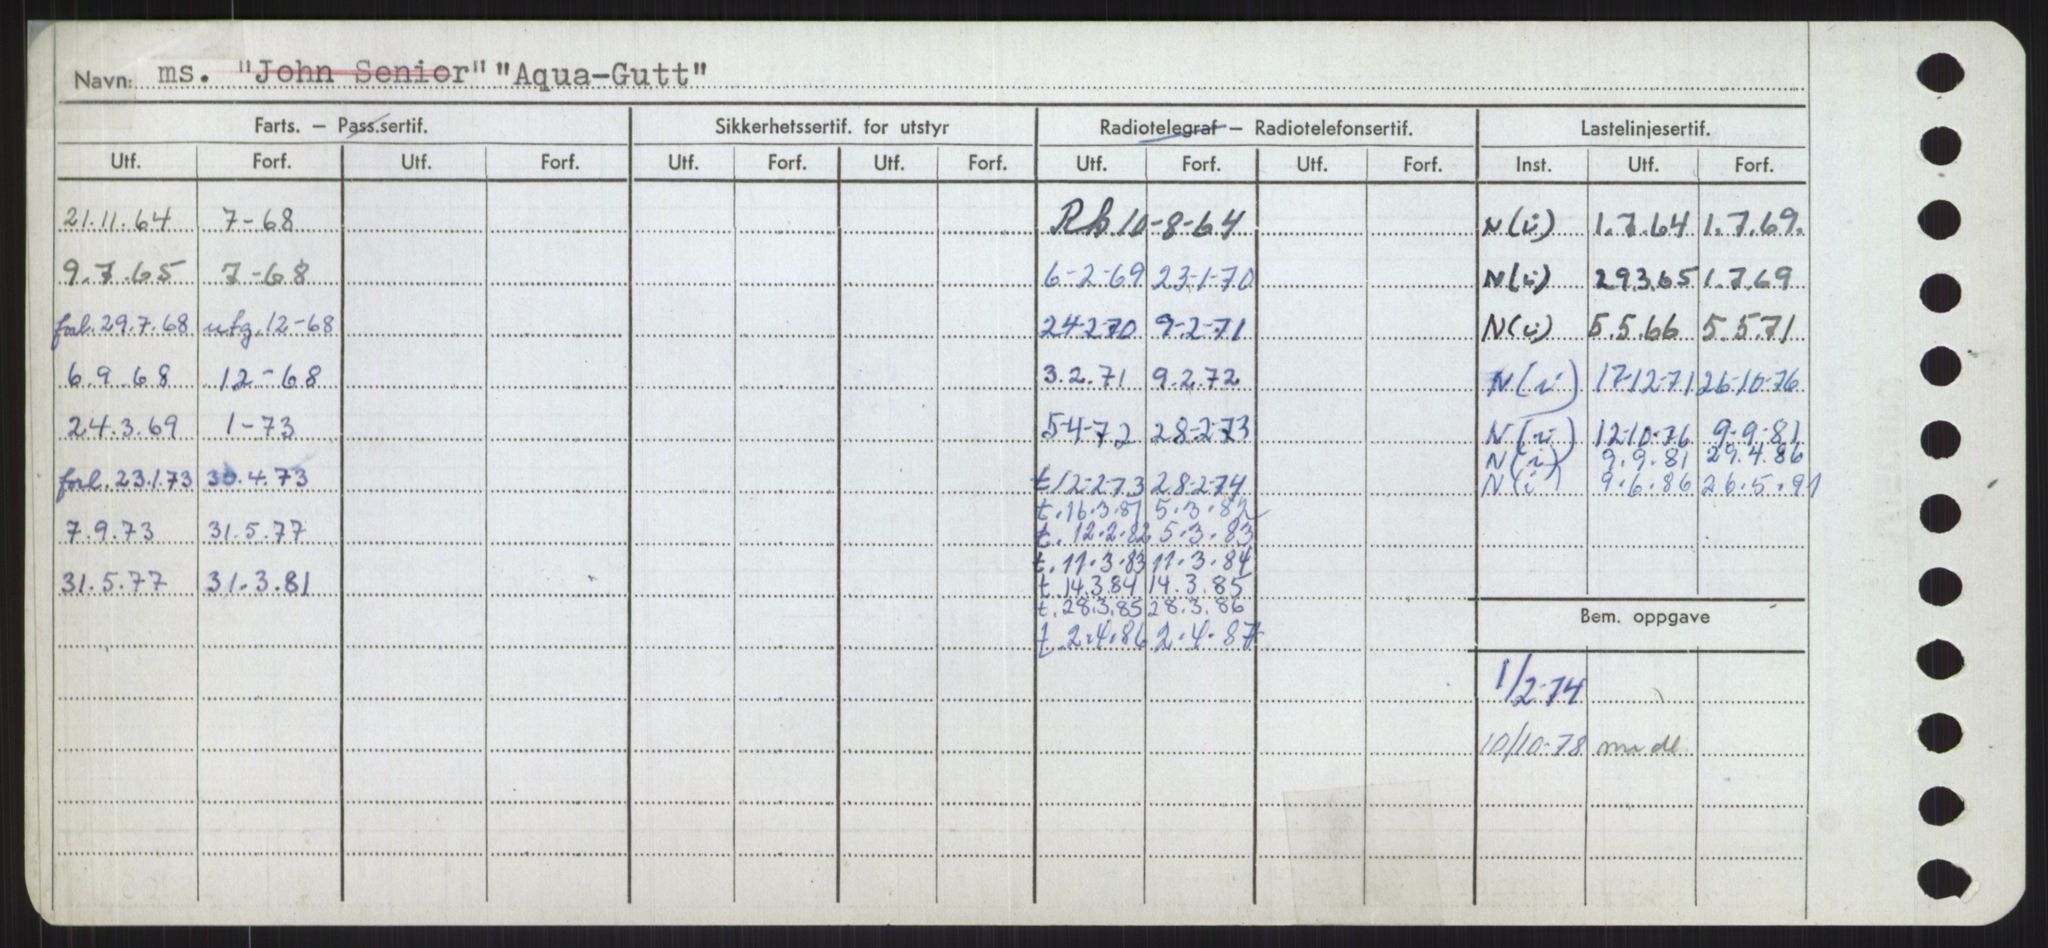 Navn: ms. "John Senior" "Aqua-Gutt"
Farts. – Pass.sertif. Sikkerhetssertif. for utstyr Radiotelegraf – Radiotelefonsertif. Lastelinjesertif.
Utf. Forf. Utf. Forf. Utf. Forf. Utf. Forf. Utf. Forf. Utf. Forf. Inst. Utf. Forf.
21.11.64 7-68 Rb 10-8-64 N(i) 1.7.64 1.7.69.
9.7.65 7-68 6-2-69 23-1-70 N(i) 29.3.65 1.7.69
forl. 29.7.68 utg. 12-68 24-2-70 9-2-71 N(i) 5.5.66 5.5.71
6.9.68 12-68 3.2.71 9.2.72 N(i) 17-12-71 26-10-76
24.3.69 1-73 5-4-72 28-2-73 N(i) 12-10-76 9-9-81
N(i) 9.9.81 29.4.86
forl. 23.1.73 30.4.73 t 12-2-73 28-2-74 N(i) 9.6.86 26.5.91
t. 16.3.81 5.3.82
7.9.73 31.5.77 t. 12.2.82 5.3.83
t. 11.3.83 11.3.84
31.5.77 31.3.81 t. 14.3.84 14.3.85
t. 28.3.85 28.3.86
Bem. oppgave
t. 2.4.86 2.4.87
1/2-74
10/10-78